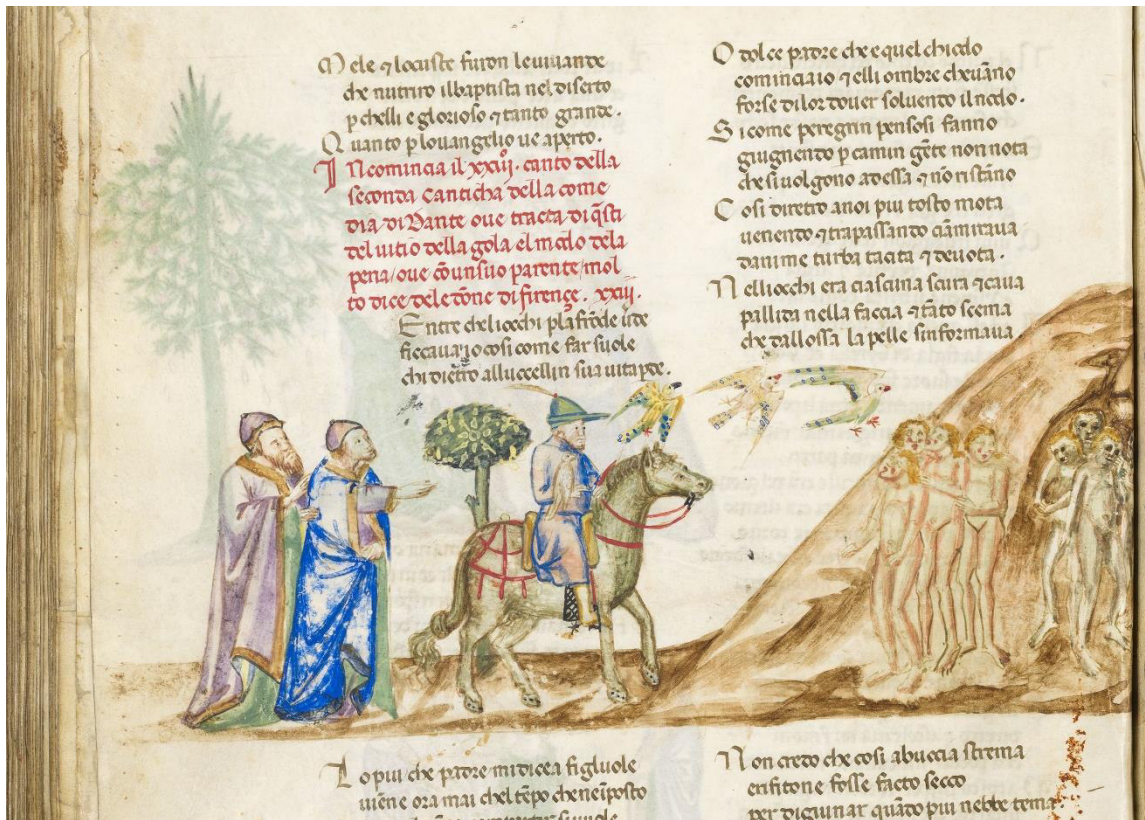 Mele ⁊ locuste furon leuiuande
che nutriro ilbaptista nel diserto
p chelli e glorioso ⁊ tanto grande.
Quanto p louangelio ue aperto.
Incomincia il xxiij. canto della
seconda canticha della come
dia di Dante oue tracta di q̄sti
del uitio della gola el modo dela
pena/oue cōunsuo parente/mol
to dice dele dōne di firençe. xxiij.
Entre cheliocchi pla frōde uirde
ficcaua io cosi come far suole
chi dietro alluccellin sua uita pde.
O dolce padre che e quel chiodo
cominciaio ⁊ elli ombre cheuāno
forse dilor douer soluendo il nodo.
Sicome peregrin pensosi fanno
giugnendo p camin gēte non nota
che si uolgono adessa ⁊ nō ristāno
Cosi diretro anoi piu tosto mota
uenendo ⁊ trapassando cāmiraua
danime turba tacita ⁊ deuota.
Nelliocchi era ciascuna scura ⁊ caua
pallida nella faccia ⁊ tāto scema
che dallossa la pelle sinformaua.
Lo piu che padre mi dicea figluole
uiēne ora mai chel tēpo che neinposto
Non credo che cosi abuccia strema
erisitone fosse facto secco
per digiunar quādo piu nebbe tema.